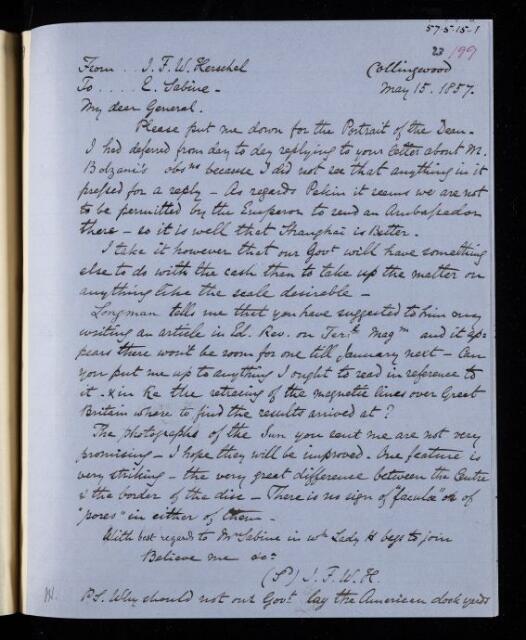 57-5-15-1
23 199
From .. J. F. W. Herschel Collingwood
To .... E. Sabine - May 15. 1857.
My dear General.
Please put me down for the Portrait of the Dean -
I had deferred from day to day replying to your letter about M.
Bolzani's obsns because I did not see that anything in it
pressed for a reply - As regards Pekin it seems we are not
to be permitted by the Emperor to send an Ambassador
there - so it is well that Shanghai is Better.
I take it however that our Govt will have something
else to do with the cash than to take up the matter on
anything like the scale desireable -
Longman tells me that you have suggested to him my
writing an article in Ed. Rev. on Terrl Magm and it ap=
pears there won't be room for one till January next - Can
you put me up to anything I ought to read in reference to
it - & in Re the retracing of the magnetic lines over Great
Britain where to find the results arrived at?
The photographs of the Sun you sent me are not very
promising - I hope they will be improved. One feature is
very striking - the very great difference between the Centre
& the border of the disc - There is no sign of "faculæ" or of
"pores" in either of them -
With best regards to Mrs Sabine in wh Lady H begs to join
Believe me &c
(S) J. F. W. H.
P.S. Why should not our Govt. lay the American dock yards